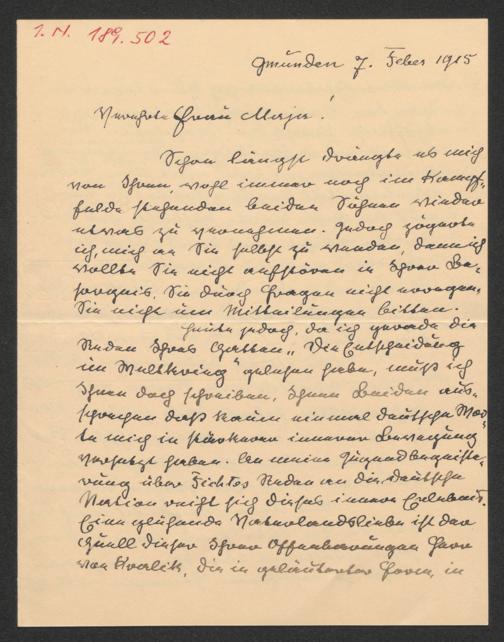 I. N. 189.502
Gmunden 7. Feber 1915
Verehrte Frau Maja!
Schon längst drängte es mich
von Ihren, wohl immer noch im Kampf-
felde stehenden beiden Söhnen wieder
etwas zu vernehmen. Jedoch zögerte
ich, mich an Sie selbst zu wenden, denn ich
wollte Sie nicht aufstören in Ihrer Be-
sorgnis, Sie durch Fragen nicht erregen,
Sie nicht um Mitteilungen bitten.
Heute jedoch, da ich gerade die
Reden Ihres Gatten „Die Entscheidung
im Weltkrieg" gelesen habe, muß ich
Ihnen doch schreiben, Ihnen Beiden aus-
sprechen daß kaum einmal deutsche Wor-
te mich in stärkere innere Bewegung
versetzt haben. An meine Jugendbegeiste-
rung über Fichtes Reden an die deutsche
Nation reiht sich dieses innere Erlebnis.
Eine glühende Vaterlandsliebe ist der
Quell dieser Ihrer Offenbarungen Herr
von Kralik, die in geläuterter Form, in